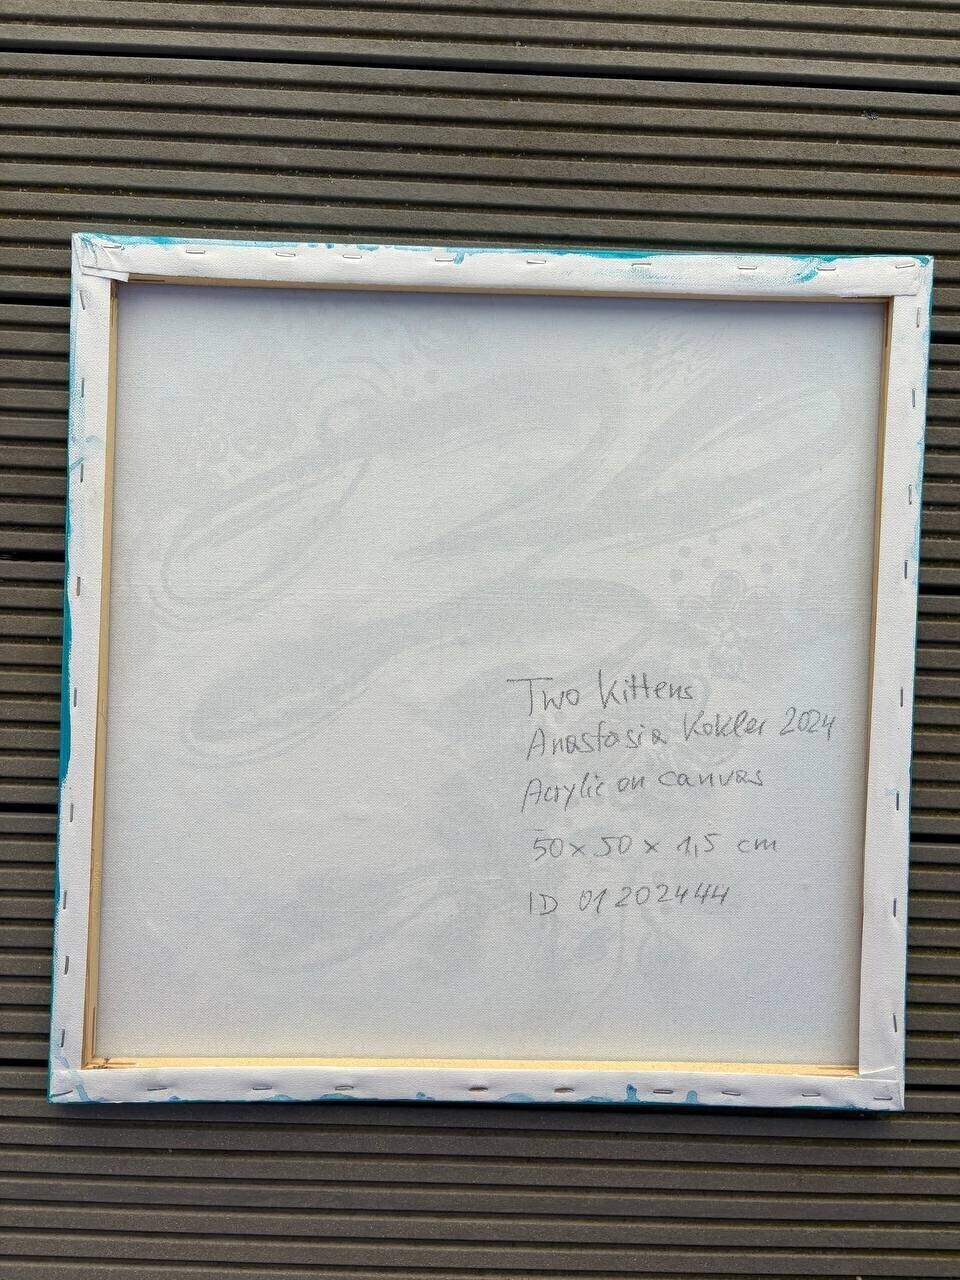 Two Kittens
Anastasia Kokler 2024
Acrylic on canvas
50 x 50 x 1,5 cm
ID 01202444